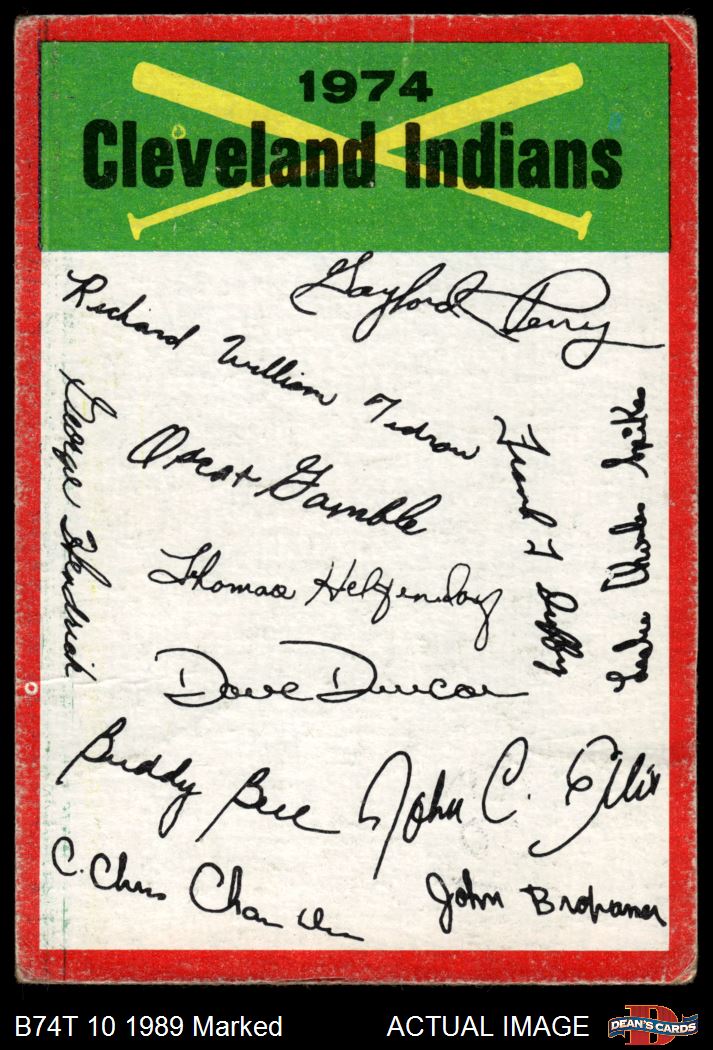 1974
Cleveland Indians
Gaylord Perry
Richard William Tidrow
George Hendrick
Oscar Gamble
Frank T Duffy
Leslie Charles Spikes
Thomas Helgendorf
Dave Duncan
Buddy Bell
John C. Ellis
C. Chris Cham
John Brohamer
B74T 10 1989 Marked
ACTUAL IMAGE
D
DEAN'S CARDS